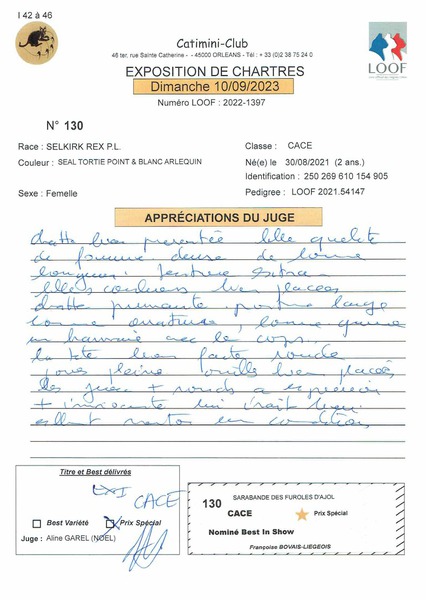 I 42 à 46
Catimini-Club
46 ter, rue Sainte Catherine - - 45000 ORLEANS - Tél : + 33 (0)2 38 75 24 0
LOOF
EXPOSITION DE CHARTRES
Dimanche 10/09/2023
Numéro LOOF : 2022-1397
N° 130
Race : SELKIRK REX P.L.
Classe : CACE
Couleur : SEAL TORTIE POINT & BLANC ARLEQUIN
Né(e) le 30/08/2021 (2 ans.)
Identification : 250 269 610 154 905
Sexe : Femelle
Pedigree : LOOF 2021.54147
APPRÉCIATIONS DU JUGE
chatte bien presentée belle qualité
de fourrure dense de bonne
longueur texture
belles couleurs bien placées
chatte poitrine large
bonne ossature, bonne queue
en harmonie avec le corps
la tête bien faite ronde
joues pleine oreilles bien placées
les yeux + ronds
+ lui irait bien
en condition
Titre et Best délivrés
CACE
Best Variété
Prix Spécial
Juge : Aline GAREL (NOEL)
130
SARABANDE DES FUROLES D'AJOL
CACE
Prix Spécial
Nominé Best In Show
Françoise BOVAIS-LIEGEOIS